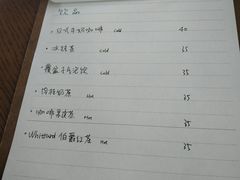 饮品
· 日式牛奶咖啡 Cold 40
· 冰抹茶 Cold 35
· 覆盆子气泡饮 Cold 35
· 伯爵奶茶 Hot 35
· 咖啡果皮茶 Hot 35
· Whittard 伯爵红茶 Hot 35